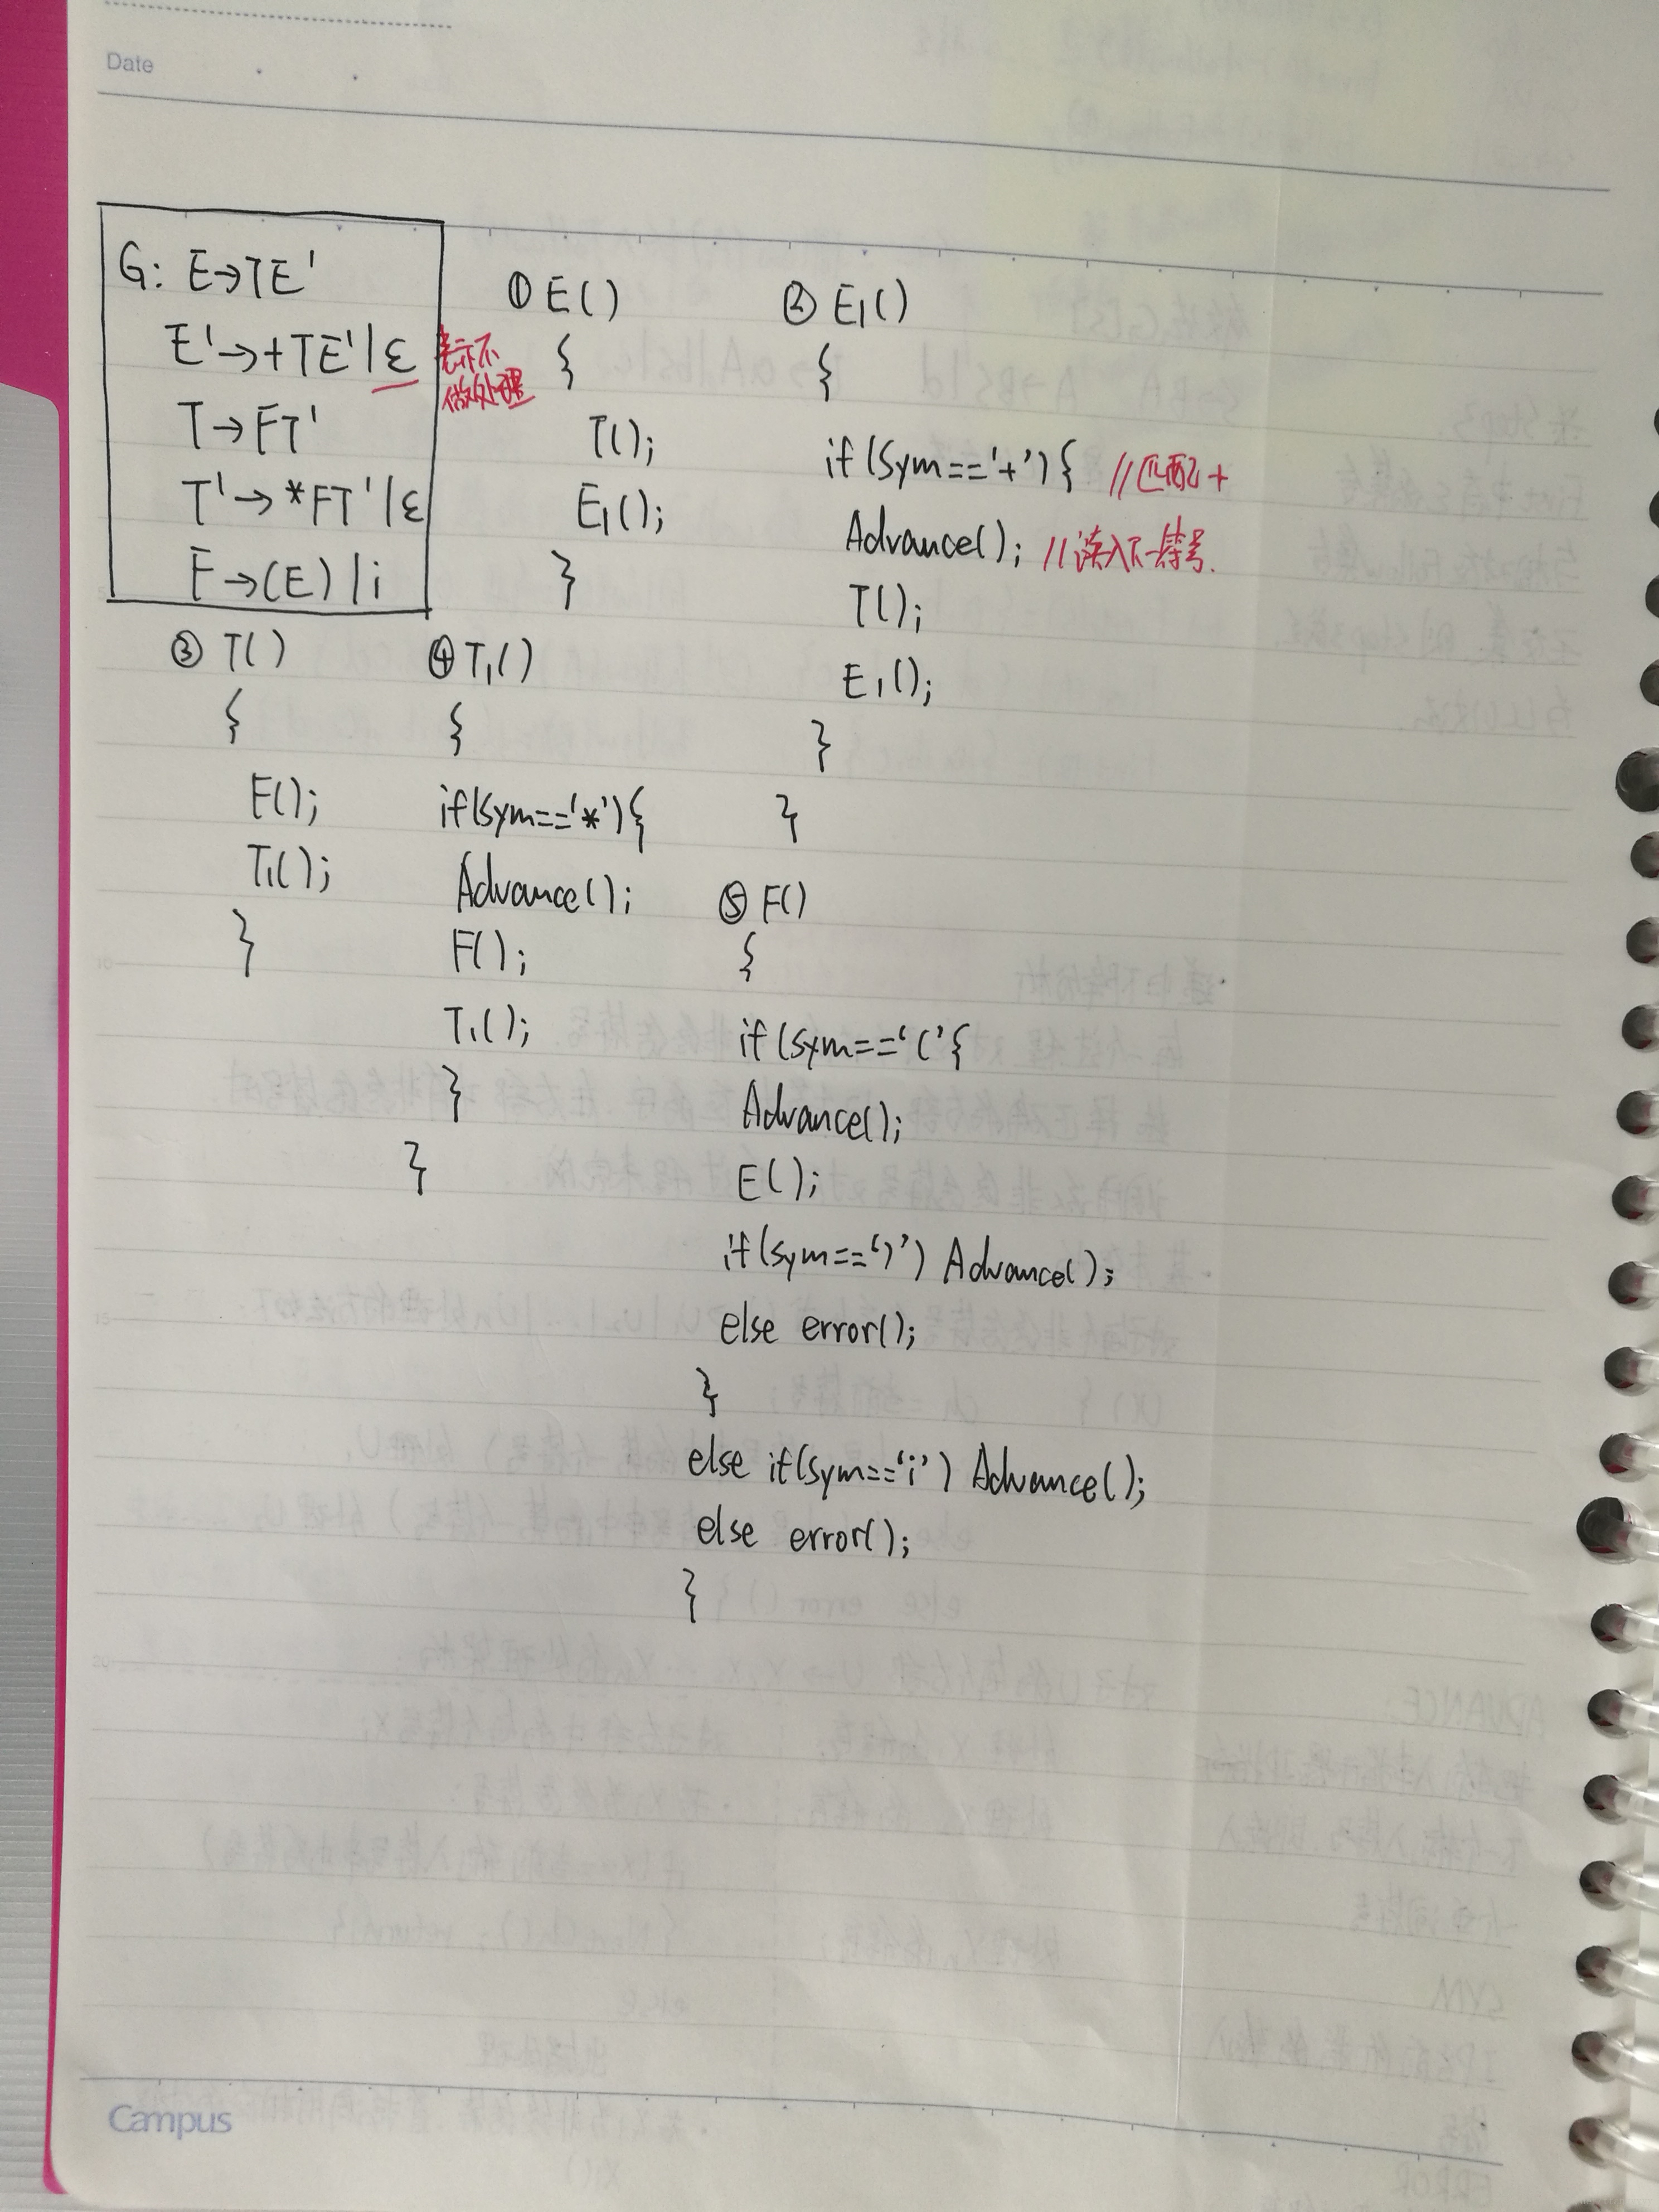 Date
G: E→TE'
E'→+TE'|ε 表示不做处理
T→FT'
T'→*FT'|ε
F→(E)|i
① E()
{
T();
E₁();
}
② E₁()
{
if(Sym=='+'){ //匹配+
Advance(); //读入下一符号.
T();
E₁();
}
}
③ T()
{
F();
T₁();
}
④ T₁()
{
if(Sym=='*'){
Advance();
F();
T₁();
}
}
⑤ F()
{
if(sym=='('{
Advance();
E();
if(sym==')') Advance();
else error();
}
else if(sym=='i') Advance();
else error();
}
Campus